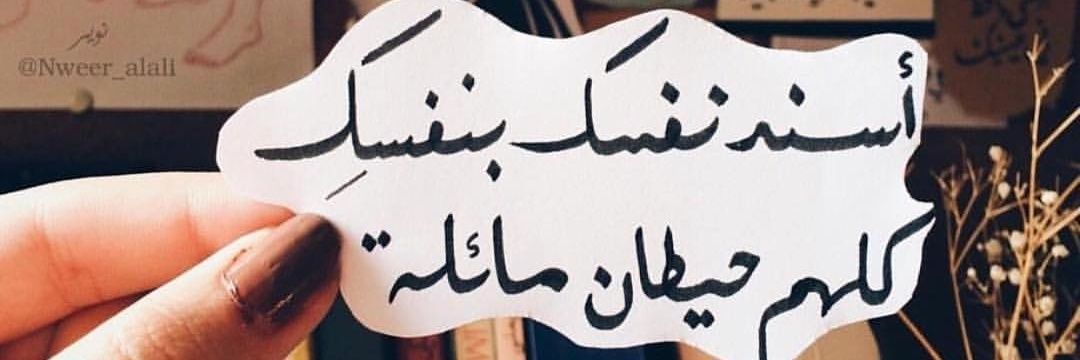 نوير
@Nweer_alali
أسند نفسك بنفسكِ
كلهم حيطان مائلة